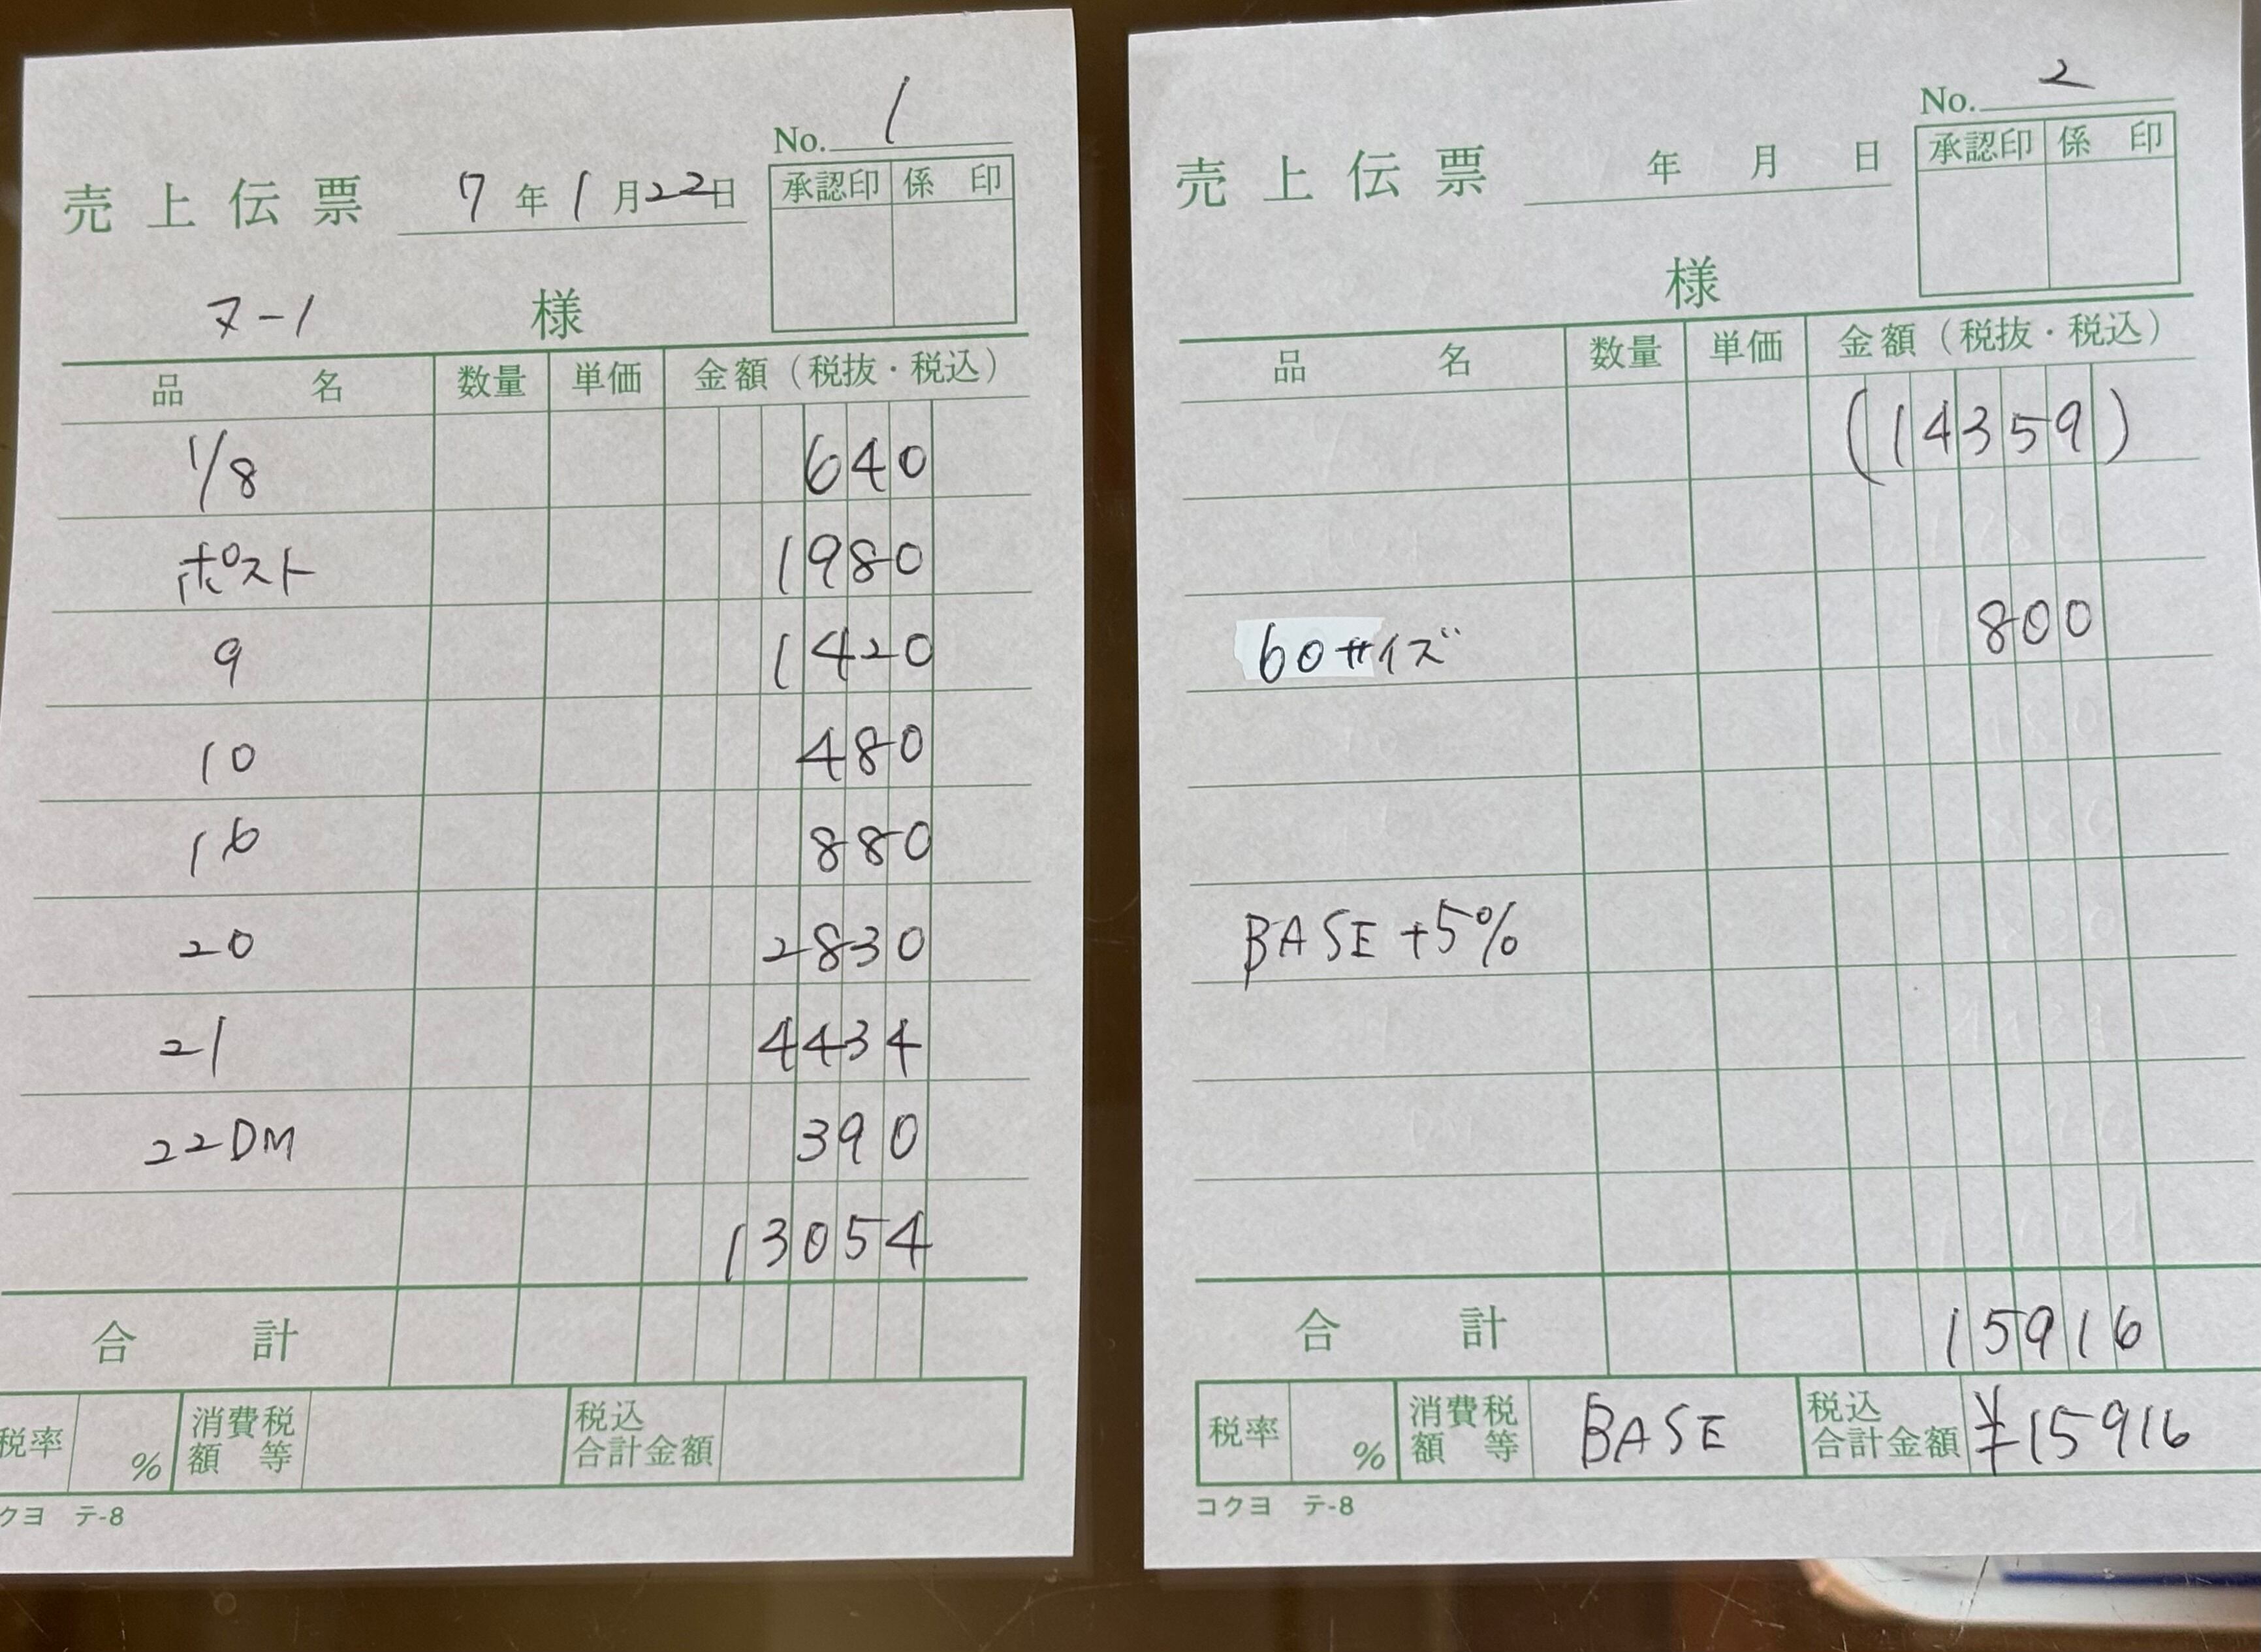 No. 1
売上伝票 7年1月22日
承認印 係印
ヌ-1 様
品名 数量 単価 金額(税抜・税込)
1/8 640
ポスト 1980
9 1420
10 480
16 880
20 2830
21 4434
22DM 390
13054
合計
税率 % 消費税額等 税込合計金額
クヨ テ-8
No. 2
売上伝票 年 月 日
承認印 係印
様
品名 数量 単価 金額(税抜・税込)
(14359)
60サイズ 800
BASE +5%
合計 15916
税率 % 消費税額等 BASE 税込合計金額 ¥15916
コクヨ テ-8